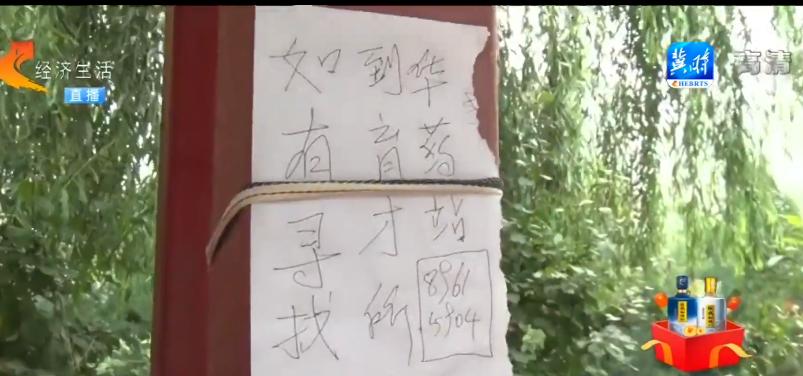 经济生活
直播
冀时
HEBRTS
高清
如有寻找
到育才所
华药站
8961
5904